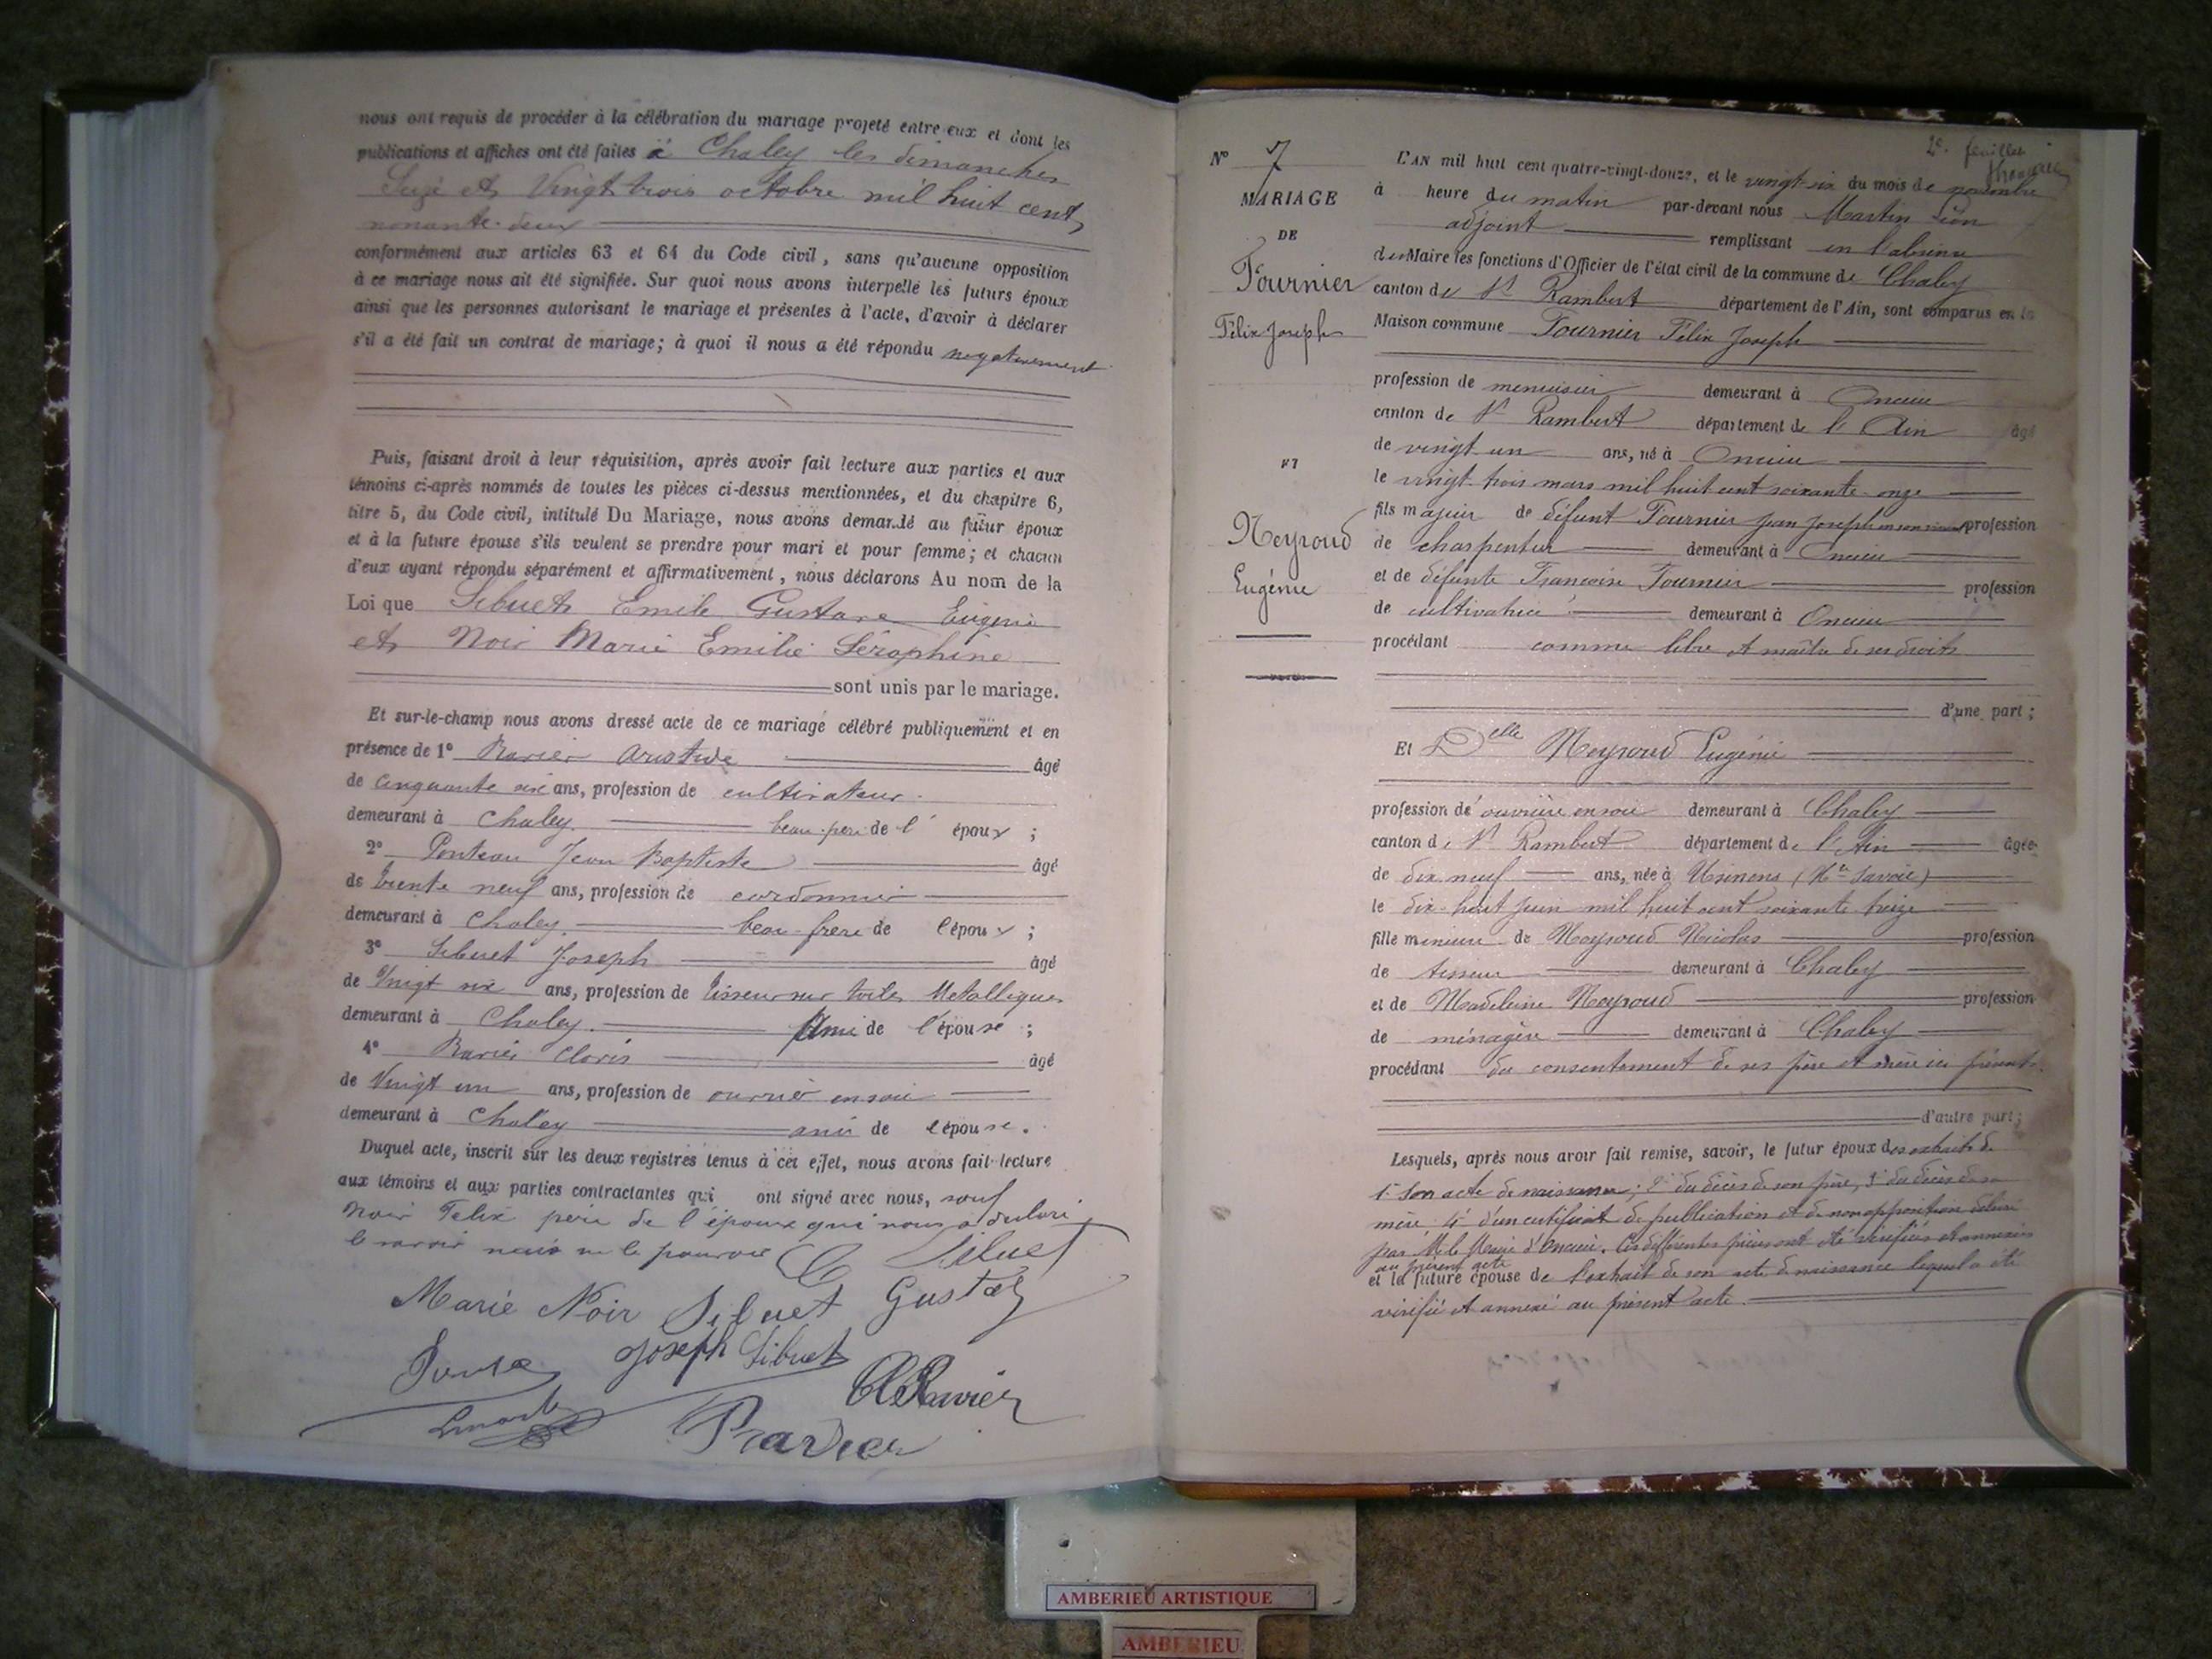 nous ont requis de procéder à la célébration du mariage projeté entre eux et dont les
publications et affiches ont été faites à Chaley les dimanches
Seize et Vingt trois octobre mil huit cent
nonante-deux
conformément aux articles 63 et 64 du Code civil, sans qu'aucune opposition
à ce mariage nous ait été signifiée. Sur quoi nous avons interpellé les futurs époux
ainsi que les personnes autorisant le mariage et présentes à l'acte, d'avoir à déclarer
s'il a été fait un contrat de mariage; à quoi il nous a été répondu negativement
Puis, faisant droit à leur réquisition, après avoir fait lecture aux parties et aux
témoins ci-après nommés de toutes les pièces ci-dessus mentionnées, et du chapitre 6,
titre 5, du Code civil, intitulé Du Mariage, nous avons demandé au futur époux
et à la future épouse s'ils veulent se prendre pour mari et pour femme; et chacun
d'eux ayant répondu séparément et affirmativement, nous déclarons Au nom de la
Loi que Sibuet Emile Gustave Eugène
et Noir Marie Emilie Séraphine
sont unis par le mariage.
Et sur-le-champ nous avons dressé acte de ce mariage célébré publiquement et en
présence de 1° Ravier Aristide âgé
de cinquante six ans, profession de cultivateur
demeurant à Chaley beau-père de l' époux ;
2° Ponteau Jean Baptiste âgé
de trente neuf ans, profession de cordonnier
demeurant à Chaley beau-frère de l'époux ;
3° Sibuet Joseph âgé
de Vingt six ans, profession de Tisseur sur toiles Metalliques
demeurant à Chaley Ami de l'épouse ;
4° Ravier Cloris âgé
de Vingt un ans, profession de ouvrier en soie
demeurant à Chaley ami de l'épouse.
Duquel acte, inscrit sur les deux registres tenus à cet effet, nous avons fait lecture
aux témoins et aux parties contractantes qui ont signé avec nous, sauf
Noir Felix père de l'épouse qui nous a declaré
le savoir mais ne le pouvoir Sibuet
Marie Noir Sibuet Gustave
Joseph Sibuet
Ravier
Ravier
N° 7
MARIAGE
DE
Fournier
Félix Joseph
ET
Neyroud
Eugénie
2e feuillet
L'AN mil huit cent quatre-vingt-douze, et le vingt-six du mois de novembre
à heure du matin par-devant nous Martin Léon
adjoint remplissant en l'absence
du Maire les fonctions d'Officier de l'état civil de la commune de Chaley
canton de St Rambert département de l'Ain, sont comparus en la
Maison commune Fournier Félix Joseph
profession de menuisier demeurant à Oncieu
canton de St Rambert département de l'Ain âgé
de vingt un ans, né à Oncieu
le vingt-trois mars mil huit cent soixante-onze
fils majeur de défunt Fournier Jean Joseph en son vivant profession
de charpentier demeurant à Oncieu
et de défunte Françoise Fournier profession
de cultivatrice demeurant à Oncieu
procédant comme libre et maître de ses droits
d'une part ;
Et Delle Neyroud Eugénie
profession de ouvrière en soie demeurant à Chaley
canton de St Rambert département de l'Ain âgée
de dix-neuf ans, née à Usinens (Hte Savoie)
le dix-huit juin mil huit cent soixante-treize
fille mineure de Neyroud Nicolas profession
de tisseur demeurant à Chaley
et de Madeleine Neyroud profession
de ménagère demeurant à Chaley
procédant du consentement de ses père et mère ici présents
d'autre part;
Lesquels, après nous avoir fait remise, savoir, le futur époux des extraits de
1° Son acte de naissance; 2° du décès de son père, 3° du décès de sa
mère 4° d'un certificat de publication et de non opposition délivré
par M. le Maire d'Oncieu. Ces différentes pièces ont été vérifiées et annexées
au présent acte
et la future épouse de l'extrait de son acte de naissance lequel a été
vérifié et annexé au présent acte.
AMBERIEU ARTISTIQUE
AMBERIEU